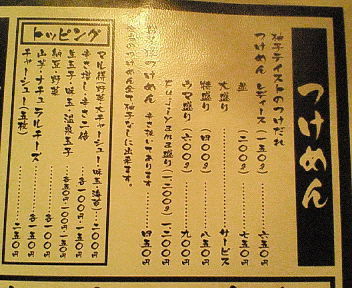 つけめん
柚子テイストのつけだれ
つけめん レディース(一五〇g) 六五〇円
並(二〇〇g) 七五〇円
大盛り サービス
特盛り(四〇〇g) 八五〇円
ウマ盛り(六〇〇g) 九〇〇円
Fujiyama盛り(一二〇〇g) 一二〇〇円
つけめん 辛さ抜いてあります 四五〇円
つけめん全て柚子なしに出来ます。
トッピング
マル得野菜大チャーシュー 味玉 海苔 二〇〇円
辛さ増し・辛さ二倍 一〇〇円
生玉子 味玉 温泉玉子 各五〇円・一〇〇円・一五〇円
納豆 野菜 各一〇〇円
山芋・ナチュラルチーズ 各一五〇円
チャーシュー(五枚) 二五〇円